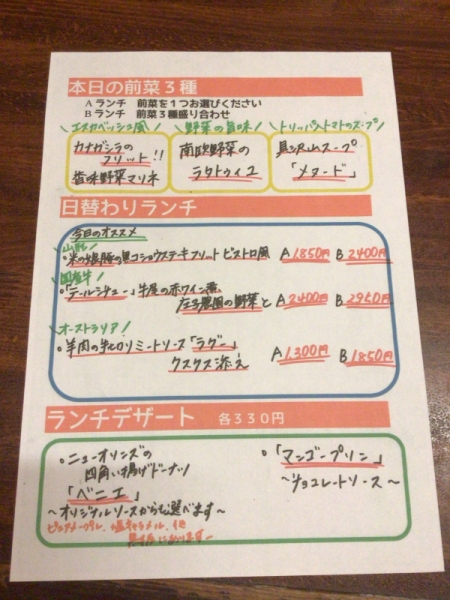 本日の前菜3種
Aランチ 前菜を1つお選びください
Bランチ 前菜3種盛り合わせ
\エスカベッシュ風/
カナガシラの
フリット!!
香味野菜マリネ
\野菜の旨味/
南欧野菜の
ラタトゥイユ
\トリッパ入トマトのスープ/
具沢山スープ
「メヌード」
日替わりランチ
今日のオススメ
\山形/
・米の娘豚の黒コショウステーキフリット ビストロ風 A1850円 B2400円
国産牛!
・「テールシチュー」牛尾の赤ワイン煮
農園の野菜と A2400円 B2950円
オーストラリア!
・羊肉の辛口ミートソース「ラグー」
クスクス添え A1300円 B1850円
ランチデザート 各330円
・ニューオリンズの
四角い揚げドーナツ
「ベニエ」
~オリジナルソースからも選べます~
ピュアメープル、塩キャラメル、他
・「マンゴープリン」
~チョコレートソース~